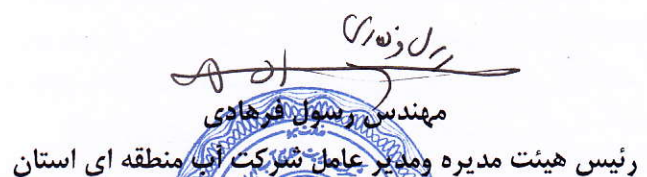 مهندس رسول فرهادی
رئیس هیئت مدیره ومدیر عامل شرکت آب منطقه ای استان